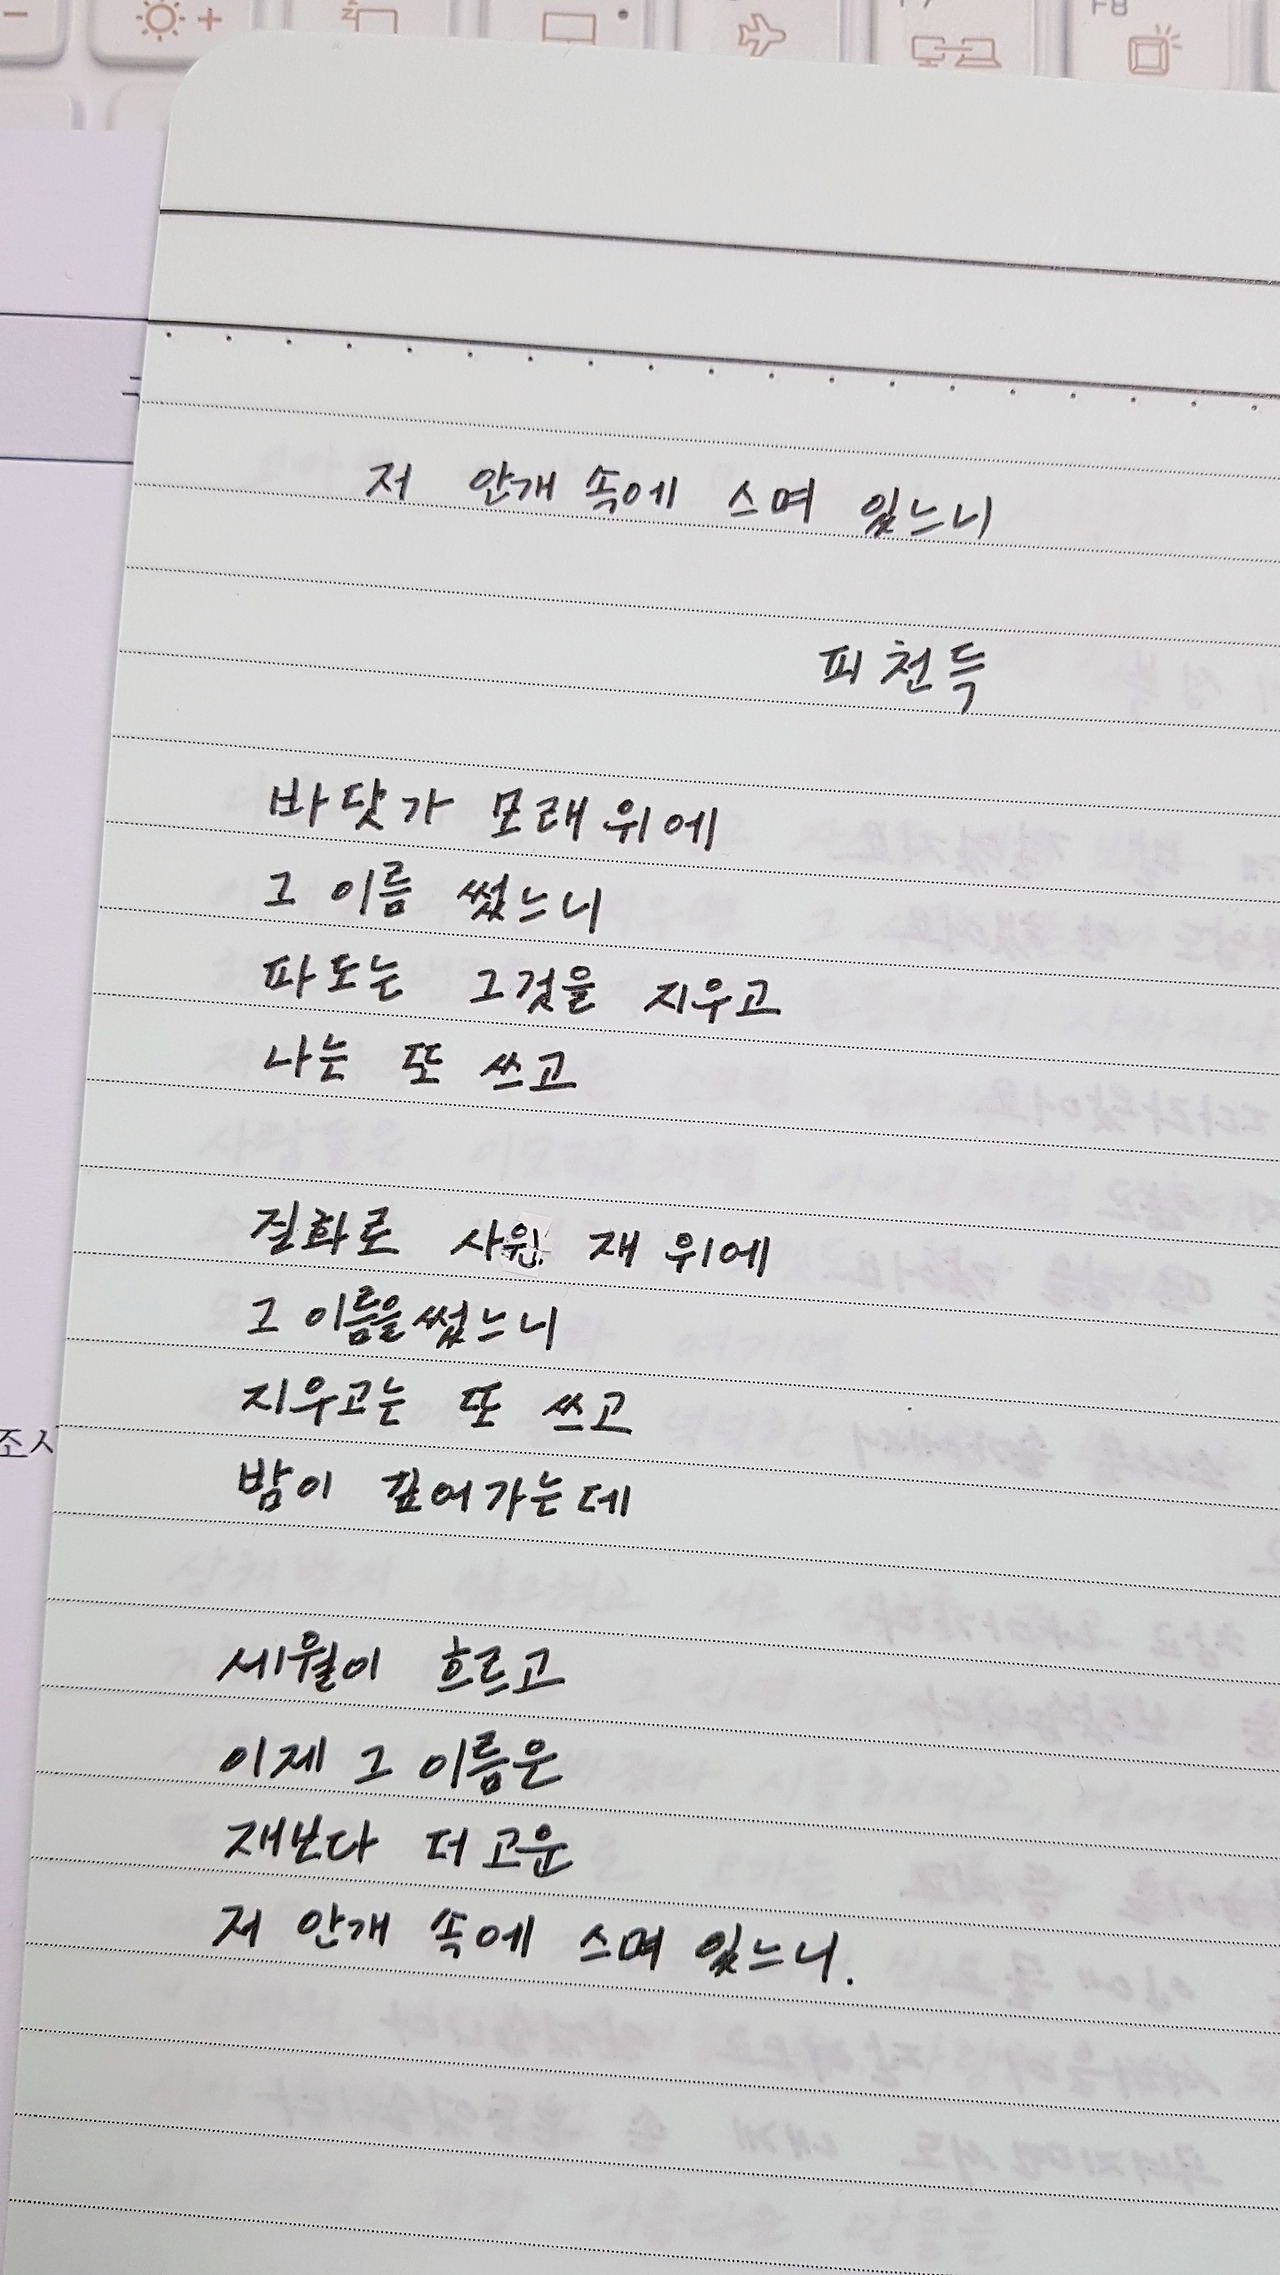 F8
저 안개 속에 스며 있느니
피천득
바닷가 모래 위에
그 이름 썼느니
파도는 그것을 지우고
나는 또 쓰고
질화로 사윈 재 위에
그 이름을 썼느니
지우고는 또 쓰고
밤이 깊어가는데
세월이 흐르고
이제 그 이름은
재보다 더 고운
저 안개 속에 스며 있느니.